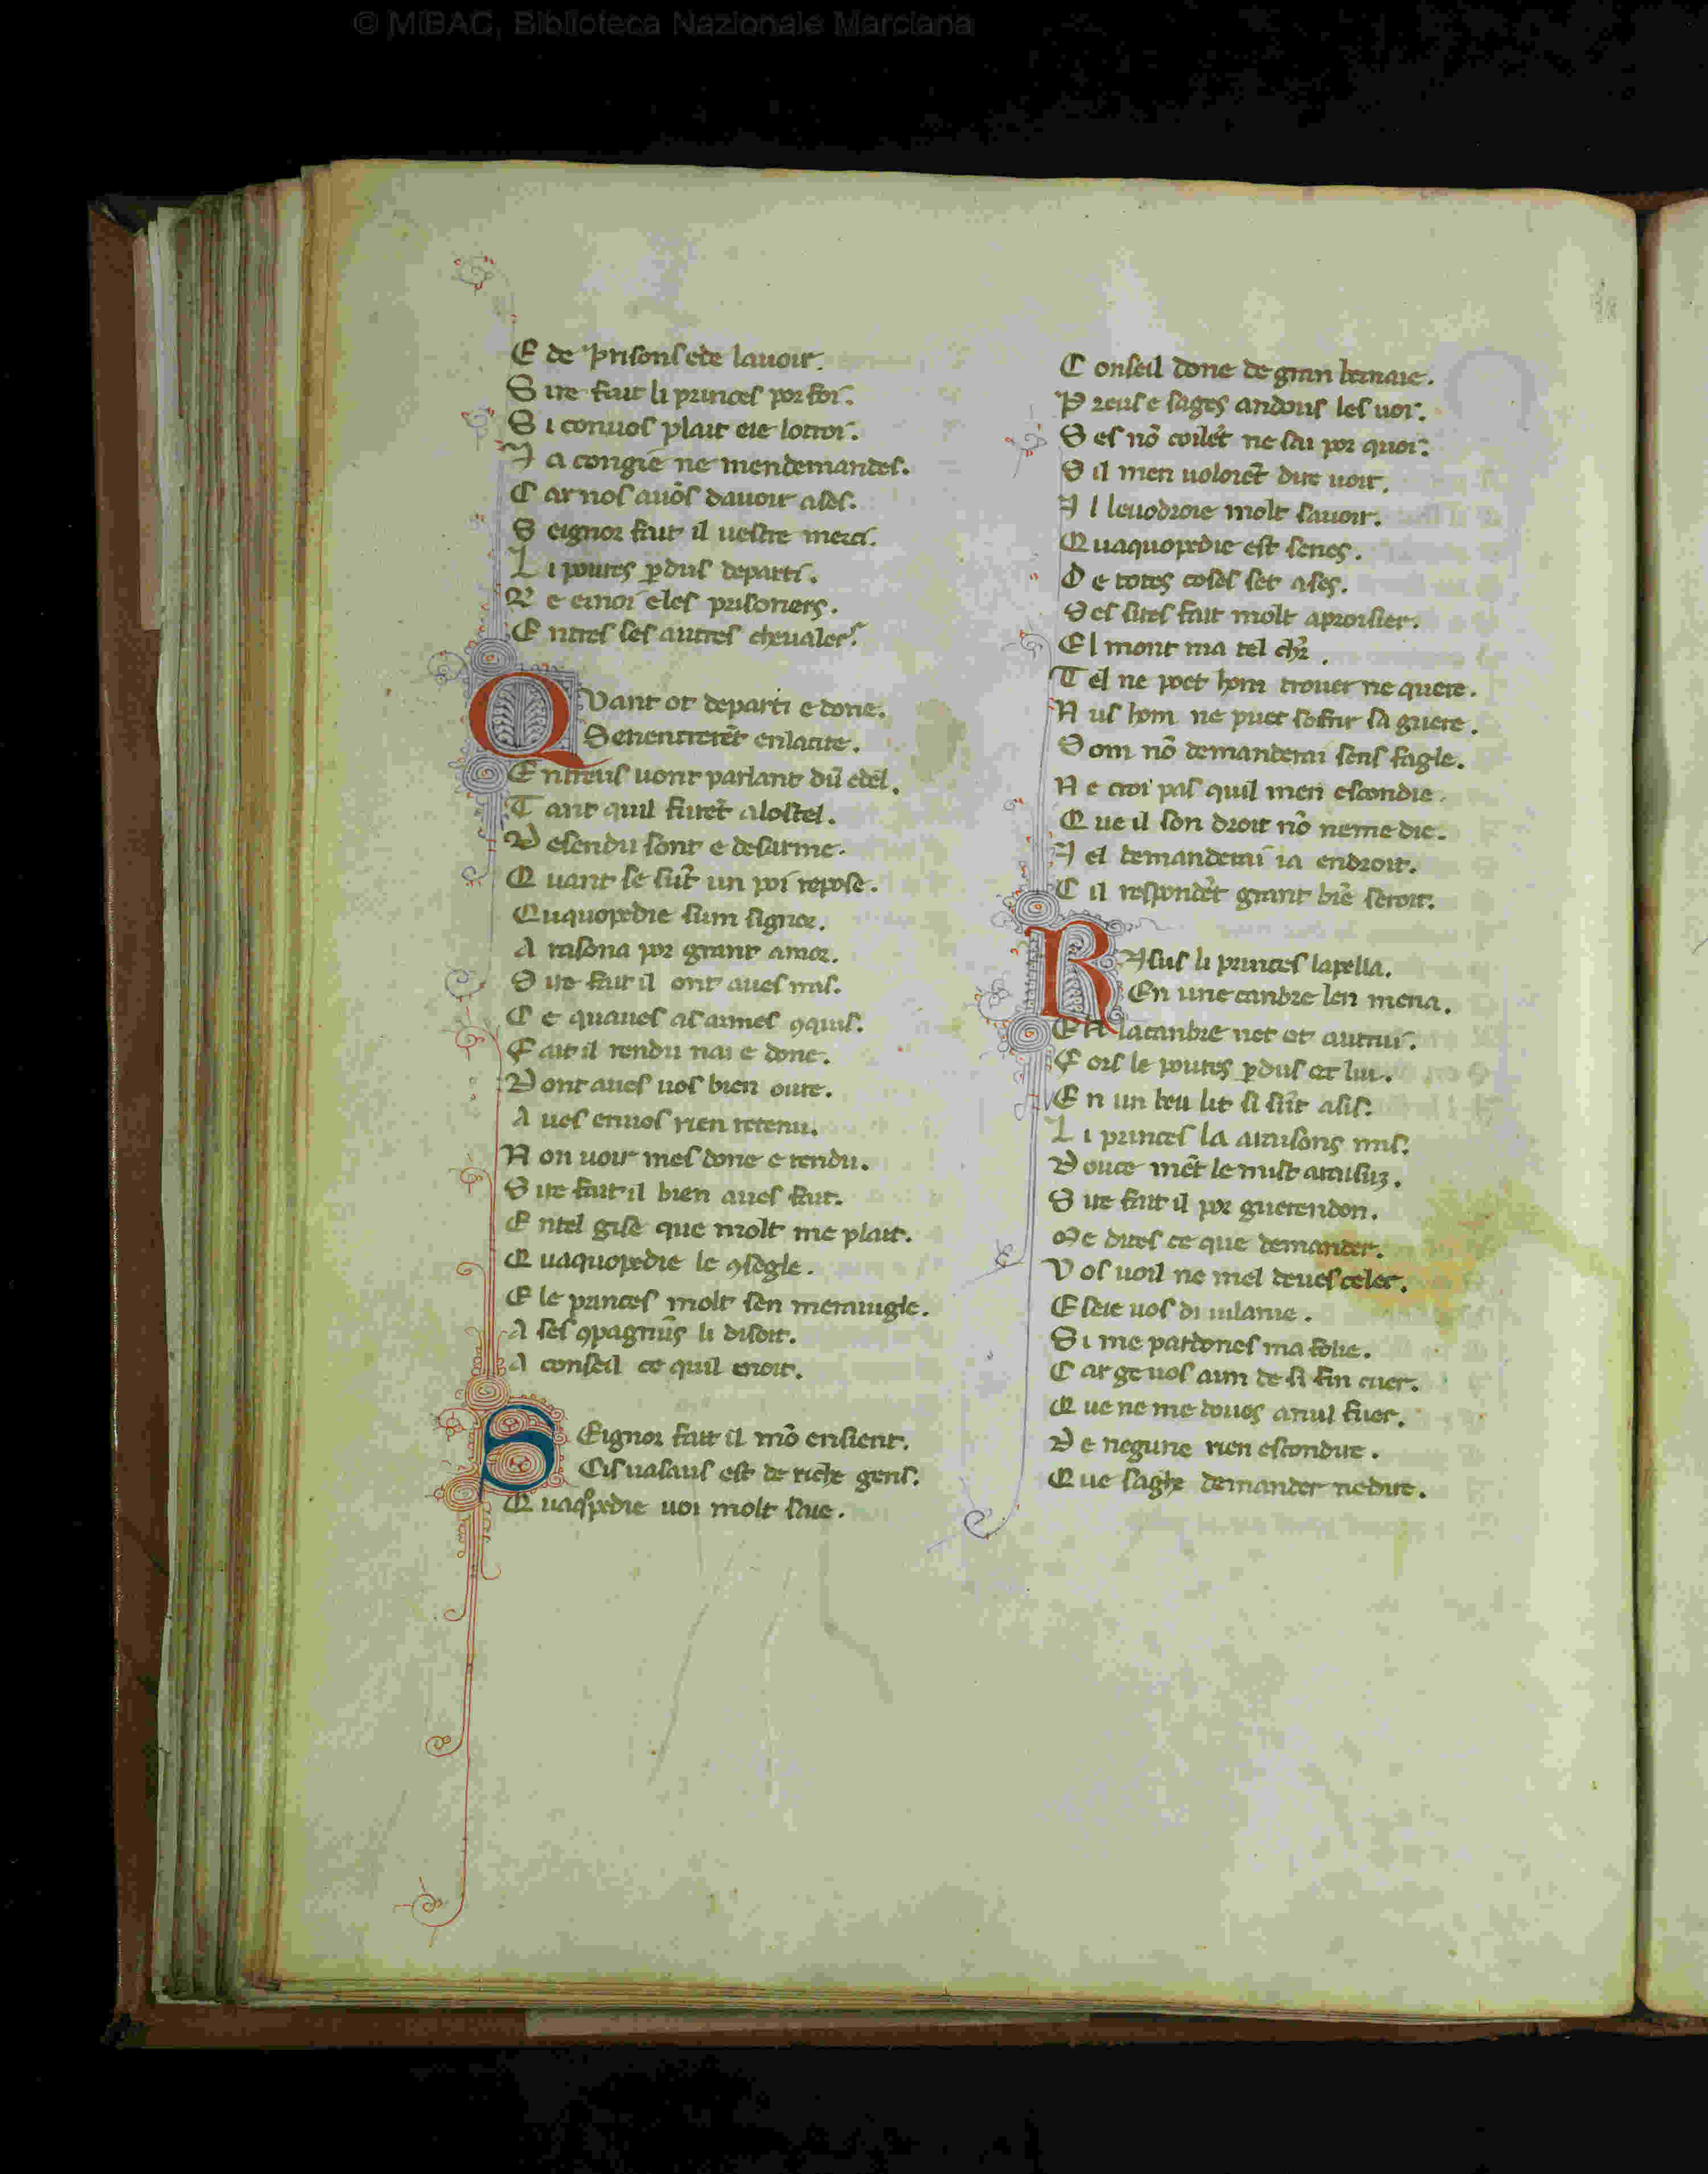 © MiBAC, Biblioteca Nazionale Marciana
E de prisons ede lauoir.
S ire fait li princes por foi.
S i conuos plait eie lotroi.
J a congie ne mendemandes.
C ar nos auōs dauoir ases.
S eignor fait il uestre merci.
L i poures ꝑdus departi.
R e emoi eles prisoners.
E ntres ses autres cheualers.
Q Vant ot departi e done.
Senentrerēt enlacite.
E ntreus uont parlant dū edel.
T ant quil furēt alostel.
D esendu sont e desarme.
Q uant se sūt un poi repose.
Ququopedie sum signor.
A rasona por grant amor.
S ire fait il ont aues mis.
C e quaues as armes ꝯquis.
F ait il rendu nai e done.
D ont aues uos bien oure.
A ues enuos rien retenu.
N on uoir mes done e rendu.
S ire fait il bien aues fait.
E ntel gise que molt me plait.
Q uaquopedie le ꝯsegle.
E le princes molt sen merauigle.
A ses ꝯpagnūs li disoit.
A conseil ce quil croit.
S Eignor fait il mō ensient.
Cis uasaus est de riche gens.
Q uaqͦpedie uoi molt saie.
C onseil done de gran bernaie.
P reus e sages andous les uoi.
S es nō coilēt ne sai por quoi.
S il men uoloiēt dire uoir.
J l leuodroie molt sauoir.
Quaquopedie est senes.
D e totes coses set ases.
S es sires fait molt aproisier.
El mont ma tel chr̄.
T el ne poet hom trouer ne quere.
N us hom ne puet sofrir sa guere.
S om nō demanderai sens fagle.
N e croi pas quil men escondie.
Q ue il son droit nō neme die.
J el demanderai ia endroit.
C il respondēt grant biē seroit.
R Jsus li princes lapella.
En une canbre len mena.
EN lacanbre net ot autrui.
F ors le poures ꝑdus et lui.
E n un beu lit si sūt asis.
L i princes la araisons mis.
D ouce mēt le mist
S ire fait il por guerendon.
M e dites ce que demander.
V os uoil ne mel deues celer.
E seie uos di uilanie.
S i me pardones ma folie.
C ar ge uos aim de si fin cuer.
Q ue ne me doues anul fuer.
D e negune rien escondire.
Q ue saghe demander nedire.